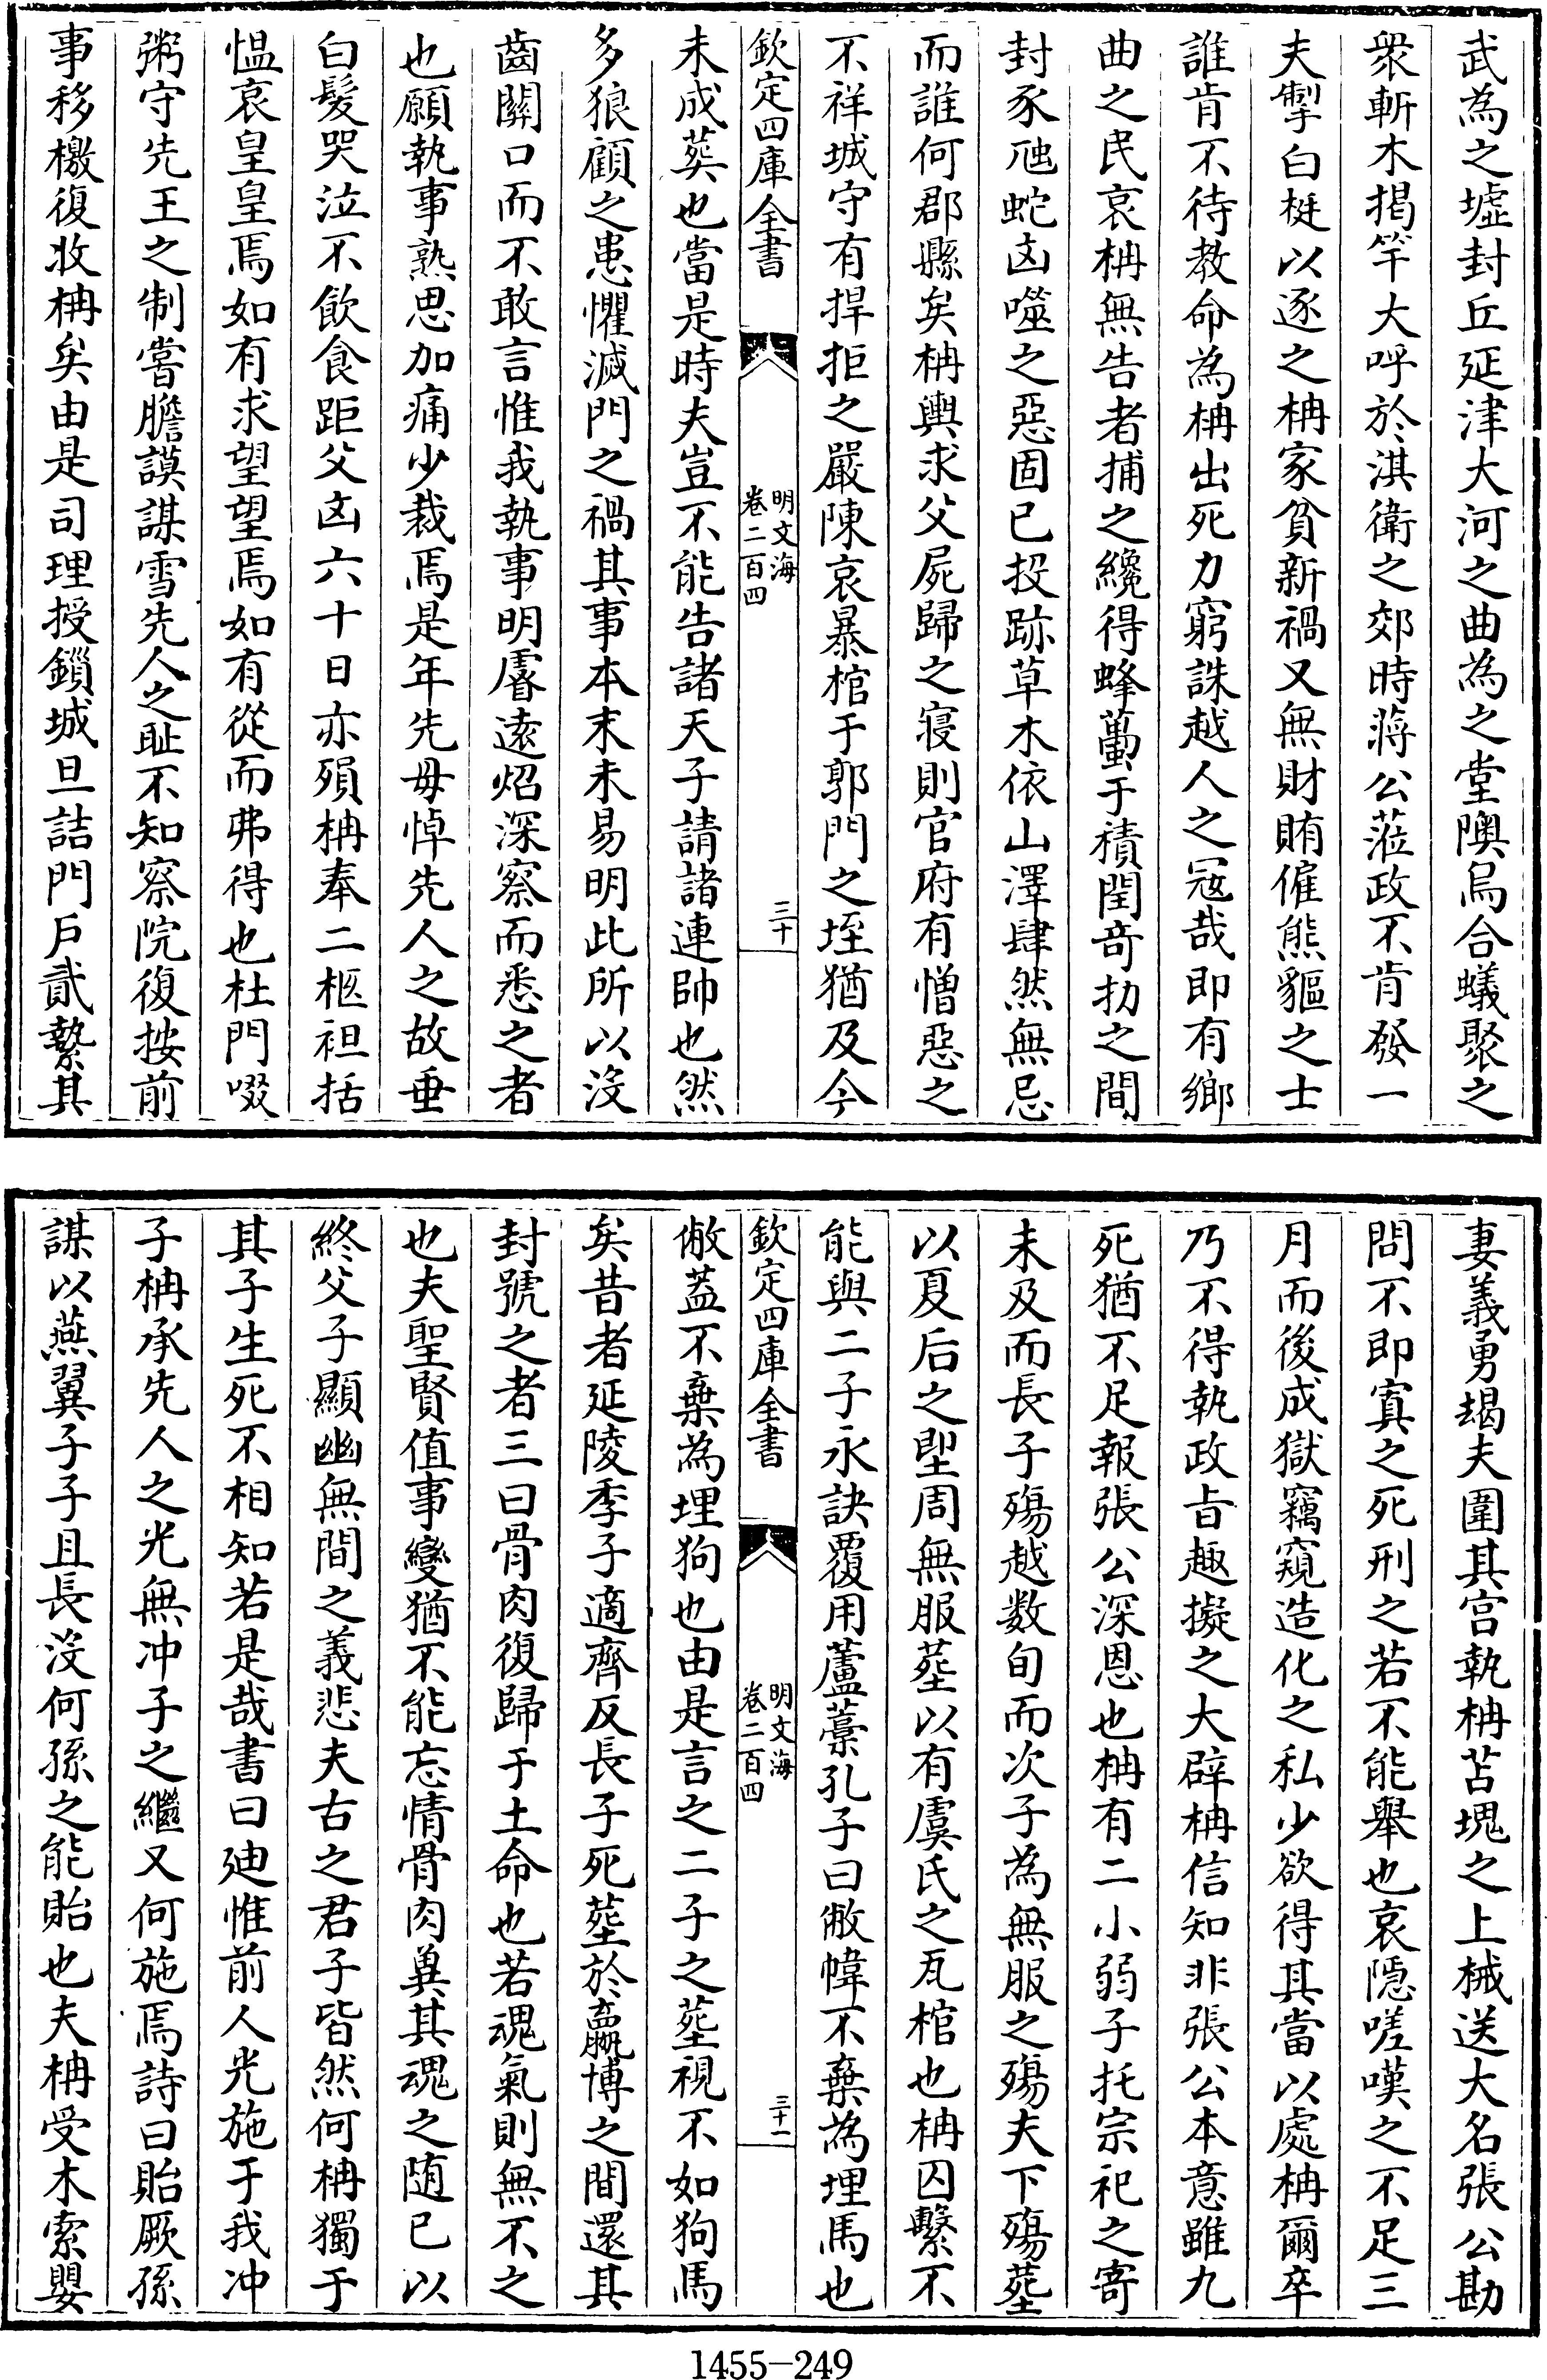 武為之墟封丘延津大河之曲為之堂隩烏合蟻聚之
衆斬木掲竿大呼於淇衛之郊時蔣公蒞政不肯發一
夫掣白梃以逐之柟家貧新禍又無財賄僱熊貙之士
誰肯不待教命為柟出死力窮誅越人之冦哉即有鄉
曲之民哀柟無告者捕之纔得蜂蠆于積閏竒扐之間
封豕虺蛇凶噬之惡固已投跡草木依山澤肆然無忌
而誰何郡縣矣柟輿求父屍歸之寢則官府有憎惡之
不祥城守有捍拒之嚴陳哀暴棺于郭門之垤猶及今
欽定四庫全書
明文海
卷二百四
三十
未成葬也當是時夫豈不能告諸天子請諸連帥也然
多狼顧之患懼滅門之禍其事本末未易明此所以沒
齒闗口而不敢言惟我執事明睿逺炤深察而悉之者
也願執事熟思加痛少裁焉是年先母悼先人之故垂
白髮哭泣不飲食距父凶六十日亦殞柟奉二柩袒括
愠哀皇皇焉如有求望望焉如有從而弗得也杜門啜
粥守先王之制嘗膽謨謀雪先人之耻不知察院復按前
事移檄復收柟矣由是司理授鎻城旦詰門戸貳縶其
妻義勇竭夫圍其宫執柟苫塊之上械送大名張公勘
問不即寘之死刑之若不能舉也哀隠嗟嘆之不足三
月而後成獄竊窺造化之私少欲得其當以處柟爾卒
乃不得執政㫖趣擬之大辟柟信知非張公本意雖九
死猶不足報張公深恩也柟有二小弱子托宗祀之寄
未及而長子殤越数旬而次子為無服之殤夫下殤塟
以夏后之堲周無服塟以有虞氏之瓦棺也柟囚繫不
能與二子永訣覆用蘆藁孔子曰敝幃不棄為埋馬也
欽定四庫全書
明文海
卷二百四
三十一
敝葢不棄為埋狗也由是言之二子之塟視不如狗馬
矣昔者延陵季子適齊反長子死塟於嬴博之間還其
封號之者三曰骨肉復歸于土命也若魂氣則無不之
也夫聖賢值事變猶不能忘情骨肉兾其魂之随已以
終父子顯幽無間之義悲夫古之君子皆然何柟獨于
其子生死不相知若是哉書曰廸惟前人光施于我冲
子柟承先人之光無冲子之繼又何施焉詩曰貽厥孫
謀以燕翼子子且長沒何孫之能貽也夫柟受木索嬰
1455-249